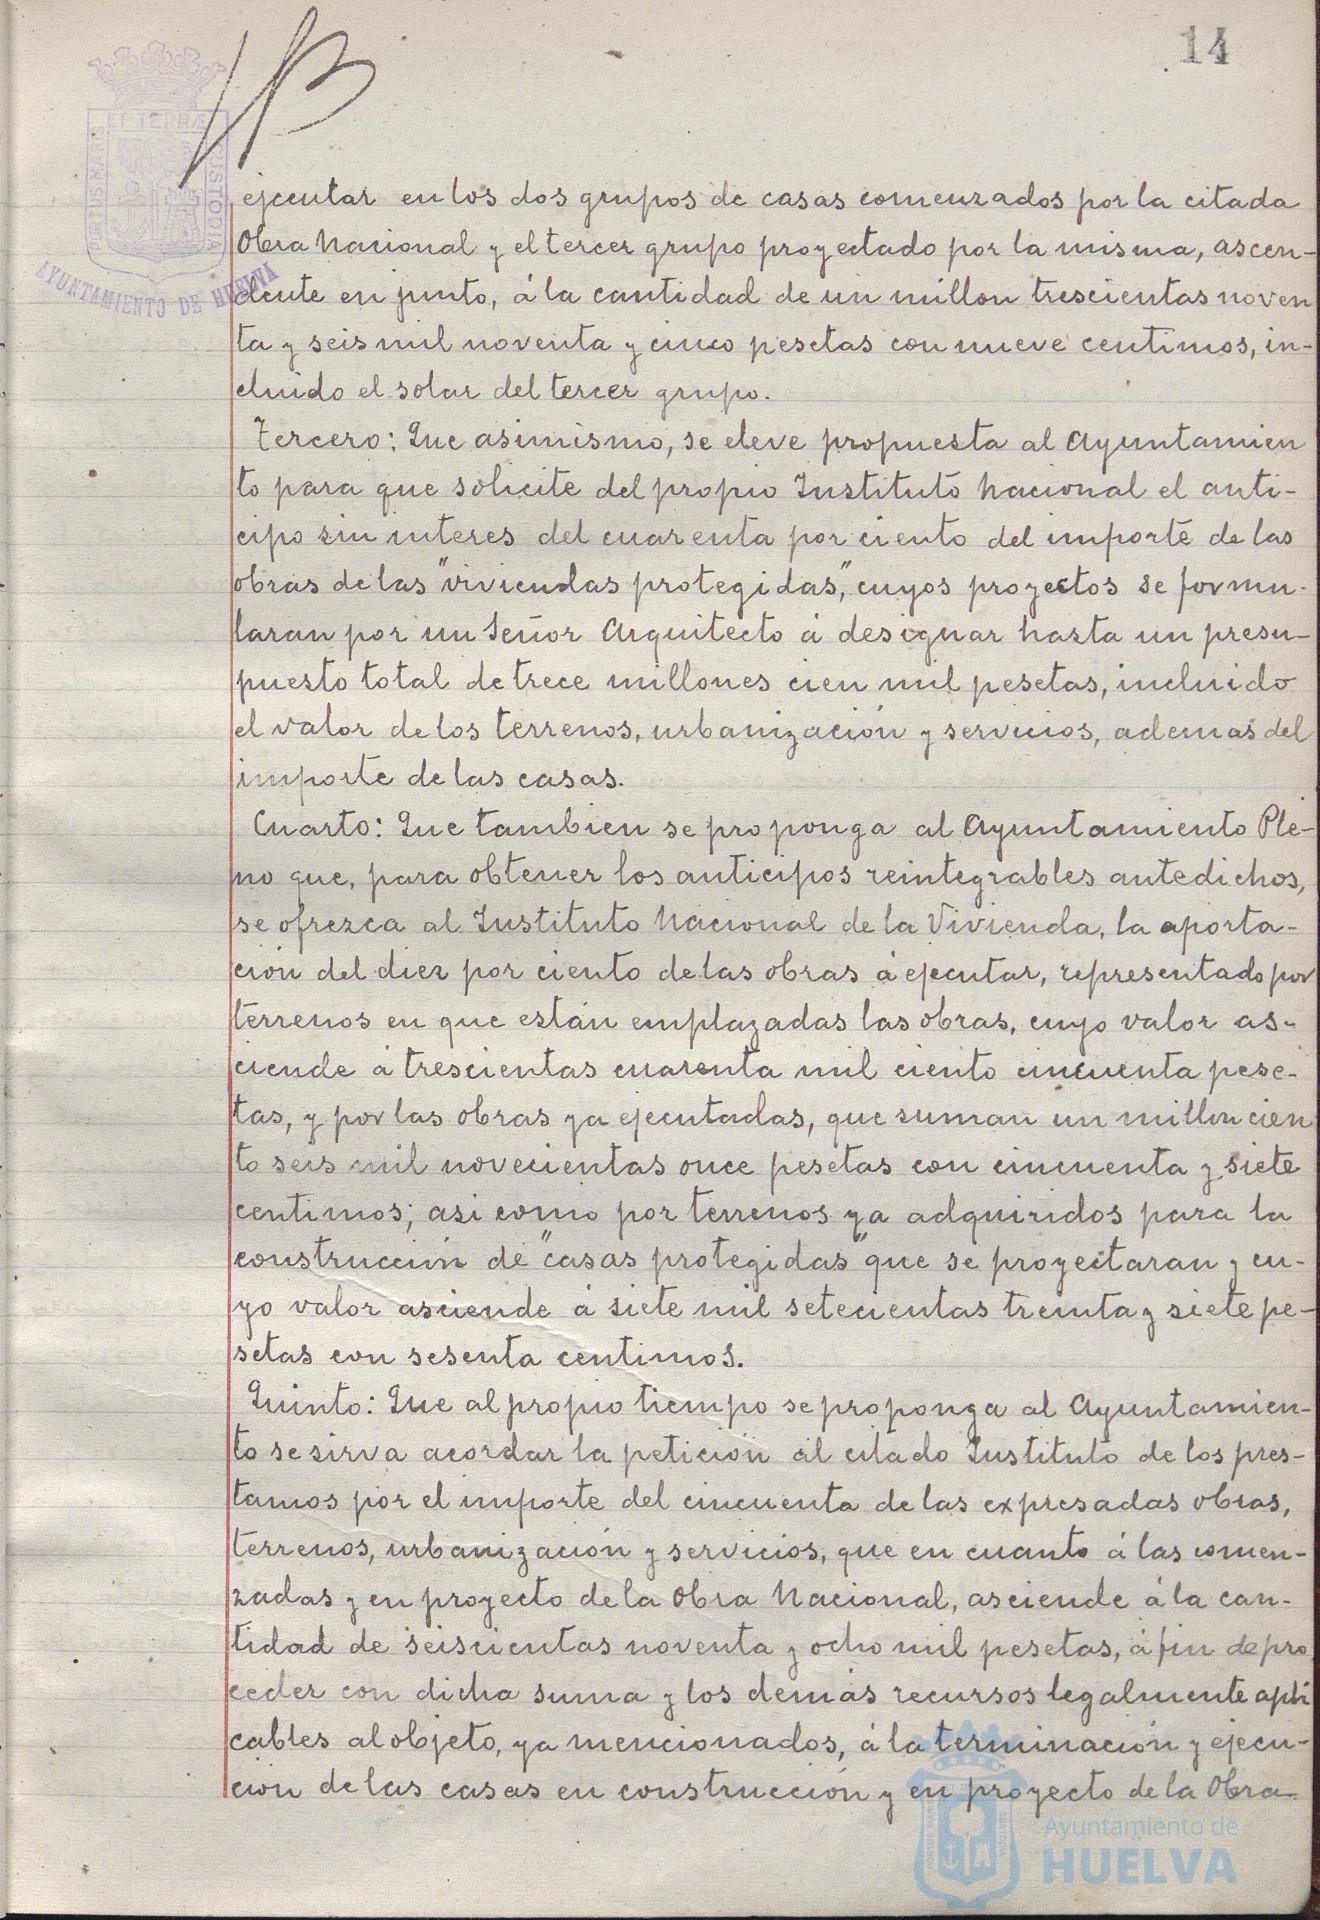 14
ET TERRÆ
PORTUS MARIS
CUSTODIA
AYUNTAMIENTO DE HUELVA
ejecutar en los dos grupos de casas comenzados por la citada
Obra Nacional y el tercer grupo proyectado por la misma, ascen-
dente en junto, á la cantidad de un millon trescientas noven
ta y seis mil noventa y cinco pesetas con nueve centimos, in-
cluido el solar del tercer grupo.
Tercero: Que asimismo, se eleve propuesta al Ayuntamien
to para que solicite del propio Instituto Nacional el anti-
cipo sin interes del cuarenta por ciento del importe de las
obras de las "viviendas protegidas", cuyos proyectos se formu-
laran por un Señor Arquitecto á designar hasta un presu-
puesto total de trece millones cien mil pesetas, incluido
el valor de los terrenos, urbanización y servicios, además del
importe de las casas.
Cuarto: Que tambien se proponga al Ayuntamiento Ple-
no que, para obtener los anticipos reintegrables antedichos,
se ofrezca al Instituto Nacional de la Vivienda, la aporta-
ción del diez por ciento de las obras á ejecutar, representado por
terrenos en que están emplazadas las obras, cuyo valor as-
ciende á trescientas cuarenta mil ciento cincuenta pese-
tas, y por las obras ya ejecutadas, que suman un millon cien
to seis mil novecientas once pesetas con cincuenta y siete
centimos; asi como por terrenos ya adquiridos para la
construcción de "casas protegidas" que se proyectaran y cu-
yo valor asciende á siete mil setecientas treinta y siete pe-
setas con sesenta centimos.
Quinto: Que al propio tiempo se proponga al Ayuntamien-
to se sirva acordar la petición al citado Instituto de los pres-
tamos por el importe del cincuenta de las expresadas obras,
terrenos, urbanización y servicios, que en cuanto á las comen-
zadas y en proyecto de la Obra Nacional, asciende á la can-
tidad de seiscientas noventa y ocho mil pesetas, á fin de pro
ceder con dicha suma y los demás recursos legalmente apli
cables al objeto, ya mencionados, á la terminación y ejecu-
ción de las casas en construcción y en proyecto de la Obra
Ayuntamiento de
HUELVA